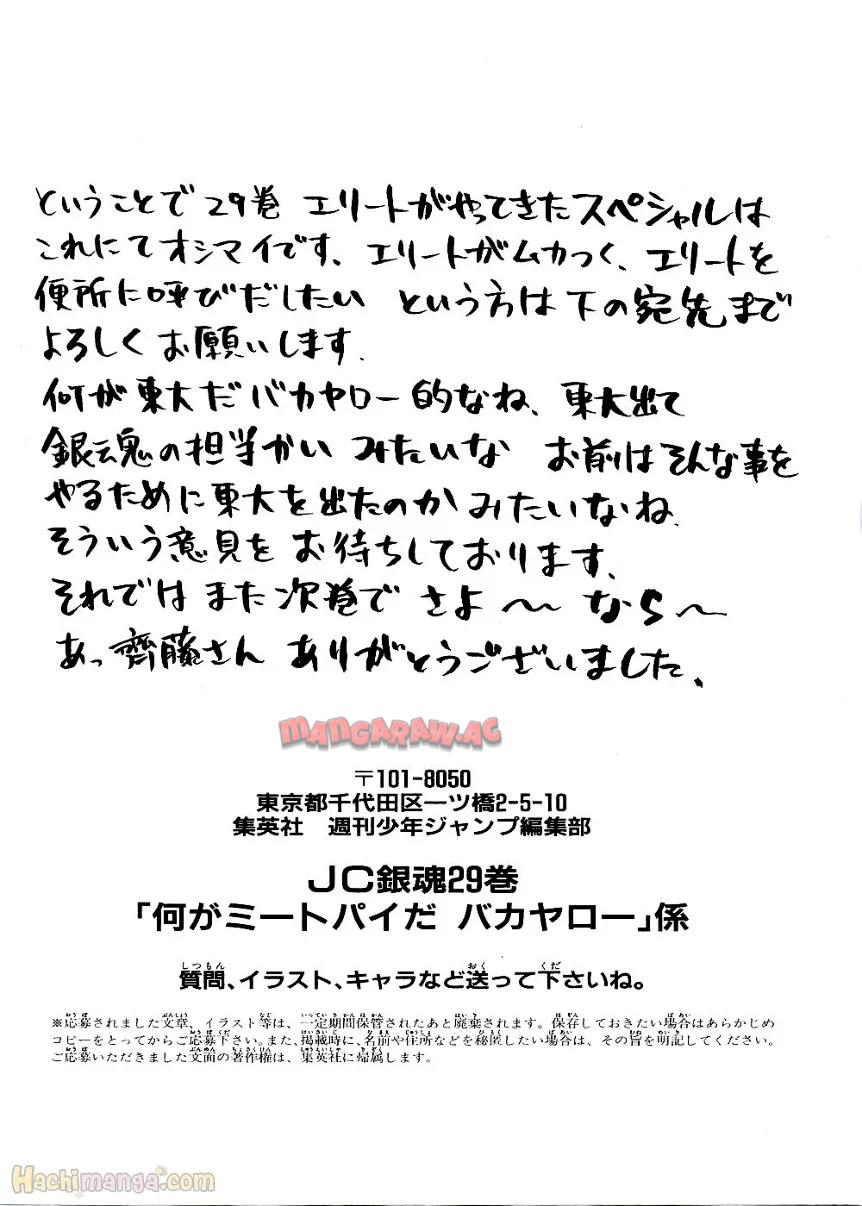 ということで29巻 エリートがやってきたスペシャルは
これにてオシマイです、エリートがムカつく、エリートを
便所に呼びだしたい という方は下の宛先まで
よろしくお願いします.
何が東大だバカヤロー的なね、東大出て
銀魂の担当かい みたいな お前はそんな事を
やるために東大を出たのか みたいなね、
そういう意見をお待ちしております、
それでは また次巻で さよ〜なら〜
あっ齊藤さん ありがとうございました、
MANGARAW.AC
〒101-8050
東京都千代田区一ツ橋2-5-10
集英社 週刊少年ジャンプ編集部
JC銀魂29巻
「何がミートパイだ バカヤロー」係
質問、イラスト、キャラなど送って下さいね。
※応募されました文章、イラスト等は、一定期間保管されたあと廃棄されます。保存しておきたい場合はあらかじめ
コピーをとってからご応募下さい。また、掲載時に、名前や住所などを秘匿したい場合は、その旨を明記してください。
ご応募いただきました文面の著作権は、集英社に帰属します。
Hachimanga.com